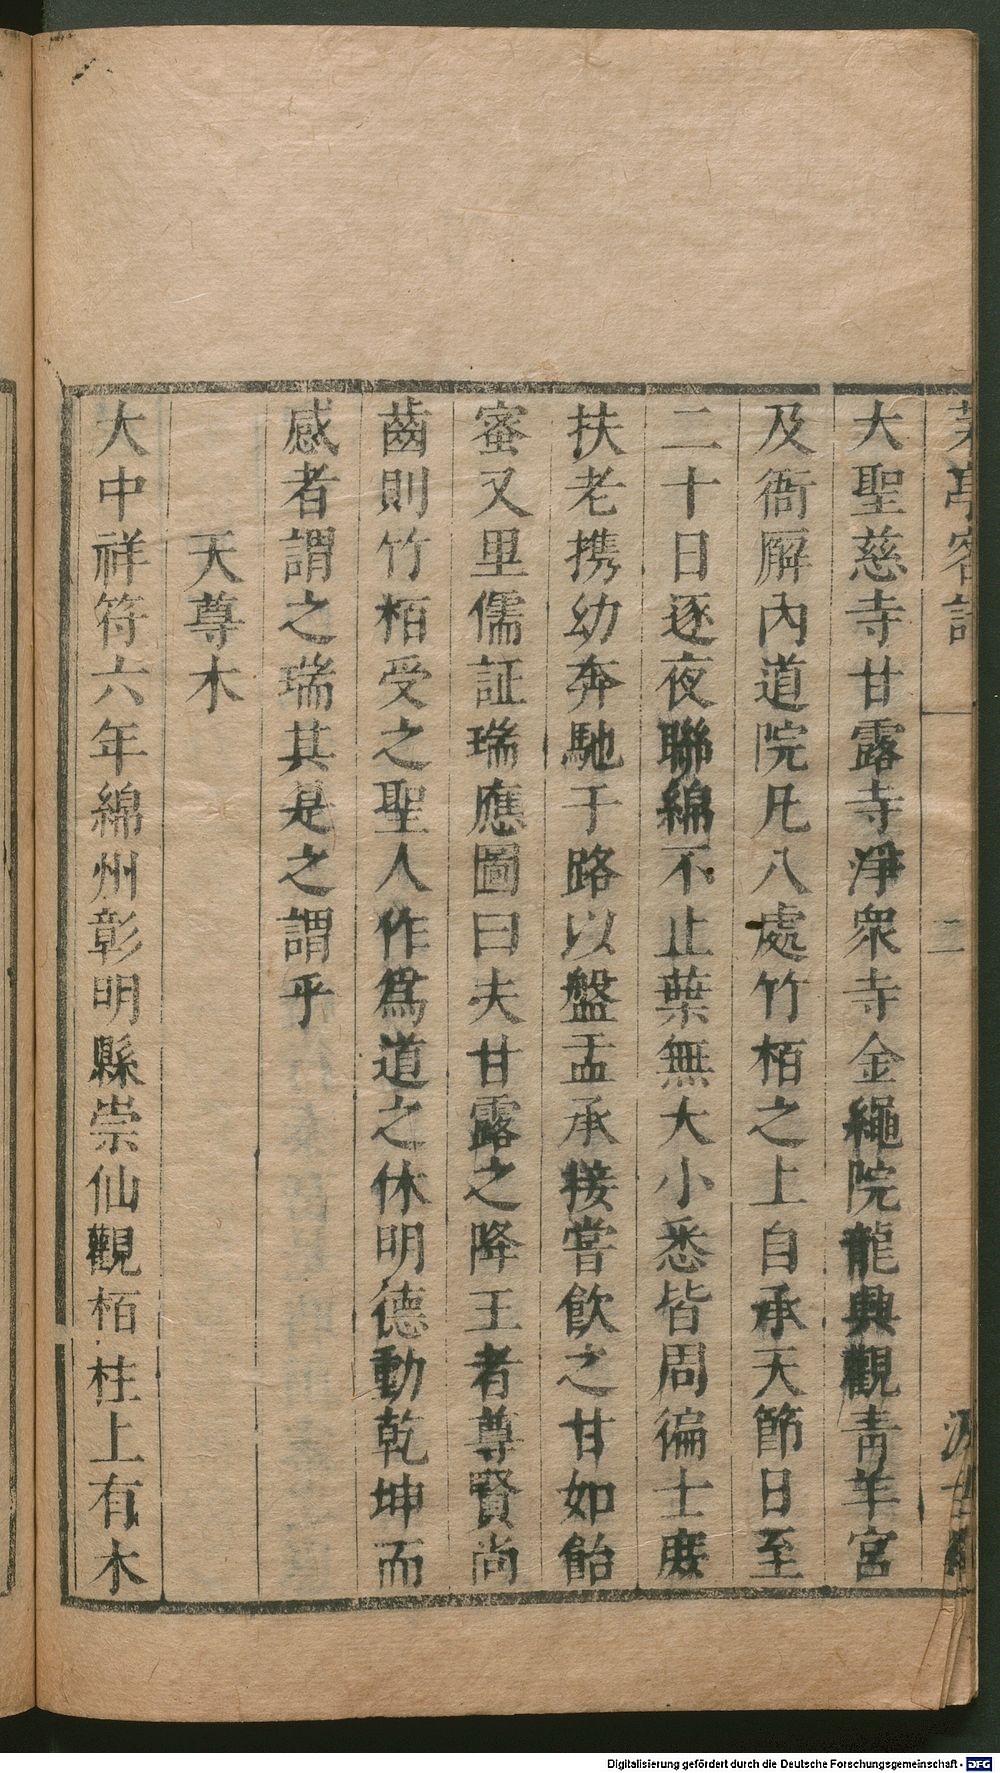 茅亭客話
二
汲古
大聖慈寺甘露寺淨衆寺金繩院龍興觀青羊宮
及衙廨內道院凡八處竹栢之上自承天節日至
二十日逐夜聯綿不止葉無大小悉皆周徧士庶
扶老携幼奔馳于路以盤盂承接嘗飲之甘如飴
蜜又里儒証瑞應圖曰夫甘露之降王者尊賢尚
齒則竹栢受之聖人作爲道之休明德動乾坤而
感者謂之瑞其是之謂乎
天尊木
大中祥符六年綿州彰明縣崇仙觀栢柱上有木
Digitalisierung gefördert durch die Deutsche Forschungsgemeinschaft - DFG